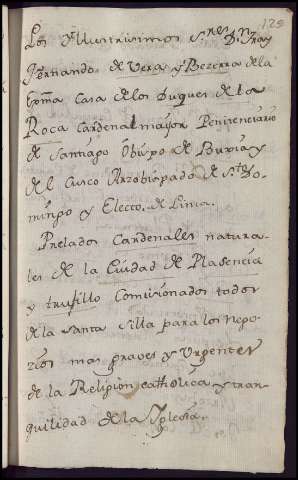 125
Los Yllustrisimos S.res D.n Fray
Fernando de Vera y Bezerra de la
Exma Casa de los Duques de la
Roca Cardenal mayor Penitenciario
de Santiago Obispo de Buxia y
del Cusco Arzobispado de S.to Do-
mingo y Electo de Lima.
Prelados Cardenales natura-
les de la Ciudad de Plasencia
y trujillo Comisionados todos
de la Santa Silla para los nego-
zios mas graves y Urgentes
de la Religion catholica y tran-
quilidad de la Yglesia.